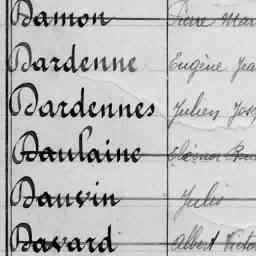 Damon Pierre Mar
Dardenne Eugène Jea
Dardennes Julien Jos
Daulaine
Dauvin Jules
Davard Albert Victo